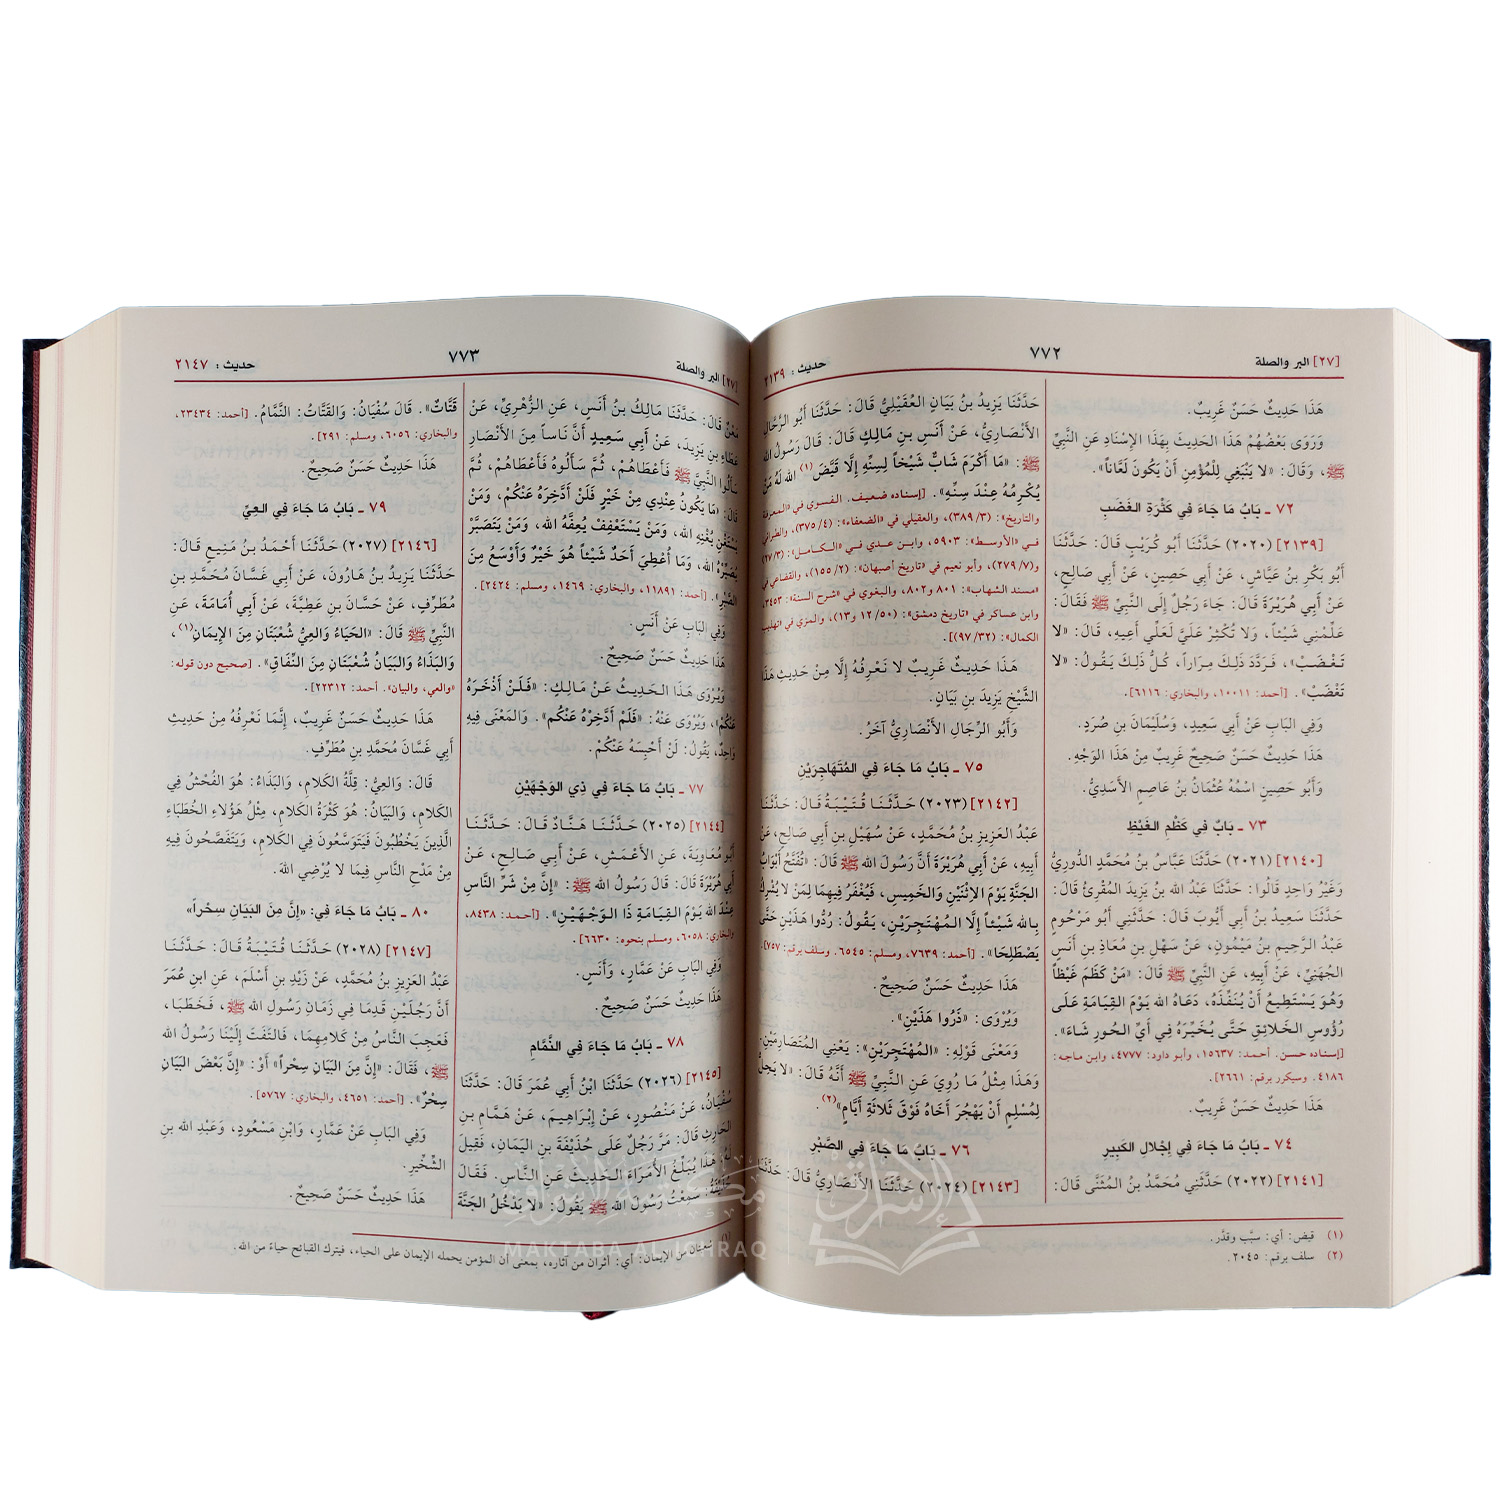 [٢٧] البر والصلة
٧٧٢
حديث : ٢١٣٩
هَذَا حَدِيثٌ حَسَنٌ غَرِيبٌ.
وَرَوَى بَعْضُهُمْ هَذَا الحَدِيثَ بِهَذَا الإِسْنَادِ عَنِ النَّبِيِّ
ﷺ، وَقَالَ: «لا يَنْبَغِي لِلْمُؤْمِنِ أَنْ يَكُونَ لَعَّاناً».
٧٢ ـ بَابُ مَا جَاءَ فِي كَثْرَةِ الغَضَبِ
[٢١٣٩] (٢٠٢٠) حَدَّثَنَا أَبُو كُرَيْبٍ قَالَ: حَدَّثَنَا
أَبُو بَكْرِ بنُ عَيَّاشٍ، عَنْ أَبِي حَصِينٍ، عَنْ أَبِي صَالِحٍ،
عَنْ أَبِي هُرَيْرَةَ قَالَ: جَاءَ رَجُلٌ إِلَى النَّبِيِّ ﷺ فَقَالَ:
عَلِّمْنِي شَيْئاً، وَلا تُكْثِرْ عَلَيَّ لَعَلِّي أَعِيهِ، قَالَ: «لا
تَغْضَبْ»، فَرَدَّدَ ذَلِكَ مِرَاراً، كُلُّ ذَلِكَ يَقُولُ: «لا
تَغْضَبْ». [أحمد: ١٠٠١١، والبخاري: ٦١١٦].
وَفِي البَابِ عَنْ أَبِي سَعِيدٍ، وَسُلَيْمَانَ بنِ صُرَدٍ.
هَذَا حَدِيثٌ حَسَنٌ صَحِيحٌ غَرِيبٌ مِنْ هَذَا الوَجْهِ.
وَأَبُو حَصِينٍ اسْمُهُ عُثْمَانُ بنُ عَاصِمٍ الأَسَدِيُّ.
٧٣ ـ بَابٌ فِي كَظْمِ الغَيْظِ
[٢١٤٠] (٢٠٢١) حَدَّثَنَا عَبَّاسُ بنُ مُحَمَّدٍ الدُّورِيُّ
وَغَيْرُ وَاحِدٍ قَالُوا: حَدَّثَنَا عَبْدُ الله بنُ يَزِيدَ المُقْرِئُ قَالَ:
حَدَّثَنَا سَعِيدُ بنُ أَبِي أَيُّوبَ قَالَ: حَدَّثَنِي أَبُو مَرْحُومٍ
عَبْدُ الرَّحِيمِ بنُ مَيْمُونٍ، عَنْ سَهْلِ بنِ مُعَاذِ بنِ أَنَسٍ
الجُهَنِيِّ، عَنْ أَبِيهِ، عَنِ النَّبِيِّ ﷺ قَالَ: «مَنْ كَظَمَ غَيْظاً
وَهُوَ يَسْتَطِيعُ أَنْ يُنَفِّذَهُ، دَعَاهُ الله يَوْمَ القِيَامَةِ عَلَى
رُؤُوسِ الخَلائِقِ حَتَّى يُخَيِّرَهُ فِي أَيِّ الحُورِ شَاءَ».
[إسناده حسن. أحمد: ١٥٦٣٧، وأبو داود: ٤٧٧٧، وابن ماجه:
٤١٨٦. وسيكرر برقم: ٢٦٦١].
هَذَا حَدِيثٌ حَسَنٌ غَرِيبٌ.
٧٤ ـ بَابُ مَا جَاءَ فِي إِجْلالِ الكَبِيرِ
[٢١٤١] (٢٠٢٢) حَدَّثَنِي مُحَمَّدُ بنُ المُثَنَّى قَالَ:
حَدَّثَنَا يَزِيدُ بنُ بَيَانٍ العُقَيْلِيُّ قَالَ: حَدَّثَنَا أَبُو الرَّجَالِ
الأَنْصَارِيُّ، عَنْ أَنَسِ بنِ مَالِكٍ قَالَ: قَالَ رَسُولُ الله
ﷺ: «مَا أَكْرَمَ شَابٌّ شَيْخاً لِسِنِّهِ إِلَّا قَيَّضَ(١) الله لَهُ مَنْ
يُكْرِمُهُ عِنْدَ سِنِّهِ». [إسناده ضعيف. الفسوي في «المعرفة
والتاريخ»: (٣٨٩/٣)، والعقيلي في «الضعفاء»: (٣٧٥/٤)، والطبراني
في «الأوسط»: ٥٩٠٣، وابن عدي في «الكامل»: (٢٧/٣)
و(٢٧٩/٧)، وأبو نعيم في «تاريخ أصبهان»: (١٥٥/٢)، والقضاعي في
«مسند الشهاب»: ٨٠١ و٨٠٢، والبغوي في «شرح السنة»: ٣٤٥٣،
وابن عساكر في «تاريخ دمشق»: (١٢/٥٠ و١٣)، والمزي في «تهذيب
الكمال»: (٩٧/٣٢)].
هَذَا حَدِيثٌ غَرِيبٌ لا نَعْرِفُهُ إِلَّا مِنْ حَدِيثِ هَذَا
الشَّيْخِ يَزِيدَ بنِ بَيَانٍ.
وَأَبُو الرِّجَالِ الأَنْصَارِيُّ آخَرُ.
٧٥ ـ بَابُ مَا جَاءَ فِي المُتَهَاجِرَيْنِ
[٢١٤٢] (٢٠٢٣) حَدَّثَنَا قُتَيْبَةُ قَالَ: حَدَّثَنَا
عَبْدُ العَزِيزِ بنُ مُحَمَّدٍ، عَنْ سُهَيْلِ بنِ أَبِي صَالِحٍ، عَنْ
أَبِيهِ، عَنْ أَبِي هُرَيْرَةَ أَنَّ رَسُولَ الله ﷺ قَالَ: «تُفَتَّحُ أَبْوَابُ
الجَنَّةِ يَوْمَ الاثْنَيْنِ وَالخَمِيسِ، فَيُغْفَرُ فِيهِمَا لِمَنْ لا يُشْرِكُ
بِالله شَيْئاً إِلَّا المُهْتَجِرَيْنِ، يَقُولُ: رُدُّوا هَذَيْنِ حَتَّى
يَصْطَلِحَا». [أحمد: ٧٦٣٩، ومسلم: ٦٥٤٥. وسلف برقم: ٧٥٧].
هَذَا حَدِيثٌ حَسَنٌ صَحِيحٌ.
وَيُرْوَى: «ذَرُوا هَذَيْنِ».
وَمَعْنَى قَوْلِهِ: «المُهْتَجِرَيْنِ»: يَعْنِي المُتَصَارِمَيْنِ.
وَهَذَا مِثْلُ مَا رُوِيَ عَنِ النَّبِيِّ ﷺ أَنَّهُ قَالَ: «لا يَحِلُّ
لِمُسْلِمٍ أَنْ يَهْجُرَ أَخَاهُ فَوْقَ ثَلاثَةِ أَيَّامٍ»(٢).
٧٦ ـ بَابُ مَا جَاءَ فِي الصَّبْرِ
[٢١٤٣] (٢٠٢٤) حَدَّثَنَا الأَنْصَارِيُّ قَالَ: حَدَّثَنَا
(١) قيض: أي: سبَّب وقدَّر.
(٢) سلف برقم: ٢٠٤٥.
[٢٧] البر والصلة
٧٧٣
حديث : ٢١٤٧
مَعْنٌ قَالَ: حَدَّثَنَا مَالِكُ بنُ أَنَسٍ، عَنِ الزُّهْرِيِّ، عَنْ
عَطَاءِ بنِ يَزِيدَ، عَنْ أَبِي سَعِيدٍ أَنَّ نَاساً مِنَ الأَنْصَارِ
سَأَلُوا النَّبِيَّ ﷺ فَأَعْطَاهُمْ، ثُمَّ سَأَلُوهُ فَأَعْطَاهُمْ، ثُمَّ
قَالَ: «مَا يَكُونُ عِنْدِي مِنْ خَيْرٍ فَلَنْ أَدَّخِرَهُ عَنْكُمْ، وَمَنْ
يَسْتَغْنِ يُغْنِهِ الله، وَمَنْ يَسْتَعْفِفْ يُعِفَّهُ الله، وَمَنْ يَتَصَبَّرْ
يُصَبِّرْهُ الله، وَمَا أُعْطِيَ أَحَدٌ شَيْئاً هُوَ خَيْرٌ وَأَوْسَعُ مِنَ
الصَّبْرِ». [أحمد: ١١٨٩١، والبخاري: ١٤٦٩، ومسلم: ٢٤٢٤].
وَفِي البَابِ عَنْ أَنَسٍ.
هَذَا حَدِيثٌ حَسَنٌ صَحِيحٌ.
وَيُرْوَى هَذَا الحَدِيثُ عَنْ مَالِكٍ: «فَلَنْ أَذْخَرَهُ
عَنْكُمْ»، وَيُرْوَى عَنْهُ: «فَلَمْ أَدَّخِرْهُ عَنْكُمْ». وَالمَعْنَى فِيهِ
وَاحِدٌ، يَقُولُ: لَنْ أَحْبِسَهُ عَنْكُمْ.
٧٧ ـ بَابُ مَا جَاءَ فِي ذِي الوَجْهَيْنِ
[٢١٤٤] (٢٠٢٥) حَدَّثَنَا هَنَّادٌ قَالَ: حَدَّثَنَا
أَبُو مُعَاوِيَةَ، عَنِ الأَعْمَشِ، عَنْ أَبِي صَالِحٍ، عَنْ
أَبِي هُرَيْرَةَ قَالَ: قَالَ رَسُولُ الله ﷺ: «إِنَّ مِنْ شَرِّ النَّاسِ
عِنْدَ الله يَوْمَ القِيَامَةِ ذَا الوَجْهَيْنِ». [أحمد: ٨٤٣٨،
والبخاري: ٦٠٥٨، ومسلم بنحوه: ٦٦٣٠].
وَفِي البَابِ عَنْ عَمَّارٍ، وَأَنَسٍ.
هَذَا حَدِيثٌ حَسَنٌ صَحِيحٌ.
٧٨ ـ بَابُ مَا جَاءَ فِي النَّمَّامِ
[٢١٤٥] (٢٠٢٦) حَدَّثَنَا ابْنُ أَبِي عُمَرَ قَالَ: حَدَّثَنَا
سُفْيَانُ، عَنْ مَنْصُورٍ، عَنْ إِبْرَاهِيمَ، عَنْ هَمَّامِ بنِ
الحَارِثِ قَالَ: مَرَّ رَجُلٌ عَلَى حُذَيْفَةَ بنِ اليَمَانِ، فَقِيلَ
لَهُ: هَذَا يُبَلِّغُ الأُمَرَاءَ الحَدِيثَ عَنِ النَّاسِ. فَقَالَ
حُذَيْفَةُ: سَمِعْتُ رَسُولَ الله ﷺ يَقُولُ: «لا يَدْخُلُ الجَنَّةَ
قَتَّاتٌ». قَالَ سُفْيَانُ: وَالقَتَّاتُ: النَّمَّامُ. [أحمد: ٢٣٤٣٤،
والبخاري: ٦٠٥٦، ومسلم: ٢٩١].
هَذَا حَدِيثٌ حَسَنٌ صَحِيحٌ.
٧٩ ـ بَابُ مَا جَاءَ فِي العِيِّ
[٢١٤٦] (٢٠٢٧) حَدَّثَنَا أَحْمَدُ بنُ مَنِيعٍ قَالَ:
حَدَّثَنَا يَزِيدُ بنُ هَارُونَ، عَنْ أَبِي غَسَّانَ مُحَمَّدِ بنِ
مُطَرِّفٍ، عَنْ حَسَّانَ بنِ عَطِيَّةَ، عَنْ أَبِي أُمَامَةَ، عَنِ
النَّبِيِّ ﷺ قَالَ: «الحَيَاءُ وَالعِيُّ شُعْبَتَانِ مِنَ الإِيمَانِ(١)،
وَالبَذَاءُ وَالبَيَانُ شُعْبَتَانِ مِنَ النِّفَاقِ». [صحيح دون قوله:
«والعي، والبيان». أحمد: ٢٢٣١٢].
هَذَا حَدِيثٌ حَسَنٌ غَرِيبٌ، إِنَّمَا نَعْرِفُهُ مِنْ حَدِيثِ
أَبِي غَسَّانَ مُحَمَّدِ بنِ مُطَرِّفٍ.
قَالَ: وَالعِيُّ: قِلَّةُ الكَلامِ، وَالبَذَاءُ: هُوَ الفُحْشُ فِي
الكَلامِ، وَالبَيَانُ: هُوَ كَثْرَةُ الكَلامِ، مِثْلُ هَؤُلاءِ الخُطَبَاءِ
الَّذِينَ يَخْطُبُونَ فَيَتَوَسَّعُونَ فِي الكَلامِ، وَيَتَفَصَّحُونَ فِيهِ
مِنْ مَدْحِ النَّاسِ فِيمَا لا يُرْضِي اللهَ.
٨٠ ـ بَابُ مَا جَاءَ فِي: «إِنَّ مِنَ البَيَانِ سِحْراً»
[٢١٤٧] (٢٠٢٨) حَدَّثَنَا قُتَيْبَةُ قَالَ: حَدَّثَنَا
عَبْدُ العَزِيزِ بنُ مُحَمَّدٍ، عَنْ زَيْدِ بنِ أَسْلَمَ، عَنِ ابنِ عُمَرَ
أَنَّ رَجُلَيْنِ قَدِمَا فِي زَمَانِ رَسُولِ الله ﷺ، فَخَطَبَا،
فَعَجِبَ النَّاسُ مِنْ كَلامِهِمَا، فَالتَفَتَ إِلَيْنَا رَسُولُ الله
ﷺ، فَقَالَ: «إِنَّ مِنَ البَيَانِ سِحْراً» أَوْ: «إِنَّ بَعْضَ البَيَانِ
سِحْرٌ». [أحمد: ٤٦٥١، والبخاري: ٥٧٦٧].
وَفِي البَابِ عَنْ عَمَّارٍ، وَابْنِ مَسْعُودٍ، وَعَبْدِ الله بنِ
الشِّخِّيرِ.
هَذَا حَدِيثٌ حَسَنٌ صَحِيحٌ.
شعبتان من الإيمان: أي: أثران من آثاره، بمعنى أن المؤمن يحمله الإيمان على الحياء، فيترك القبائح حياءً من الله.
مكتبة الإشراق
الإشراق
MAKTABA AL ICHRAQ